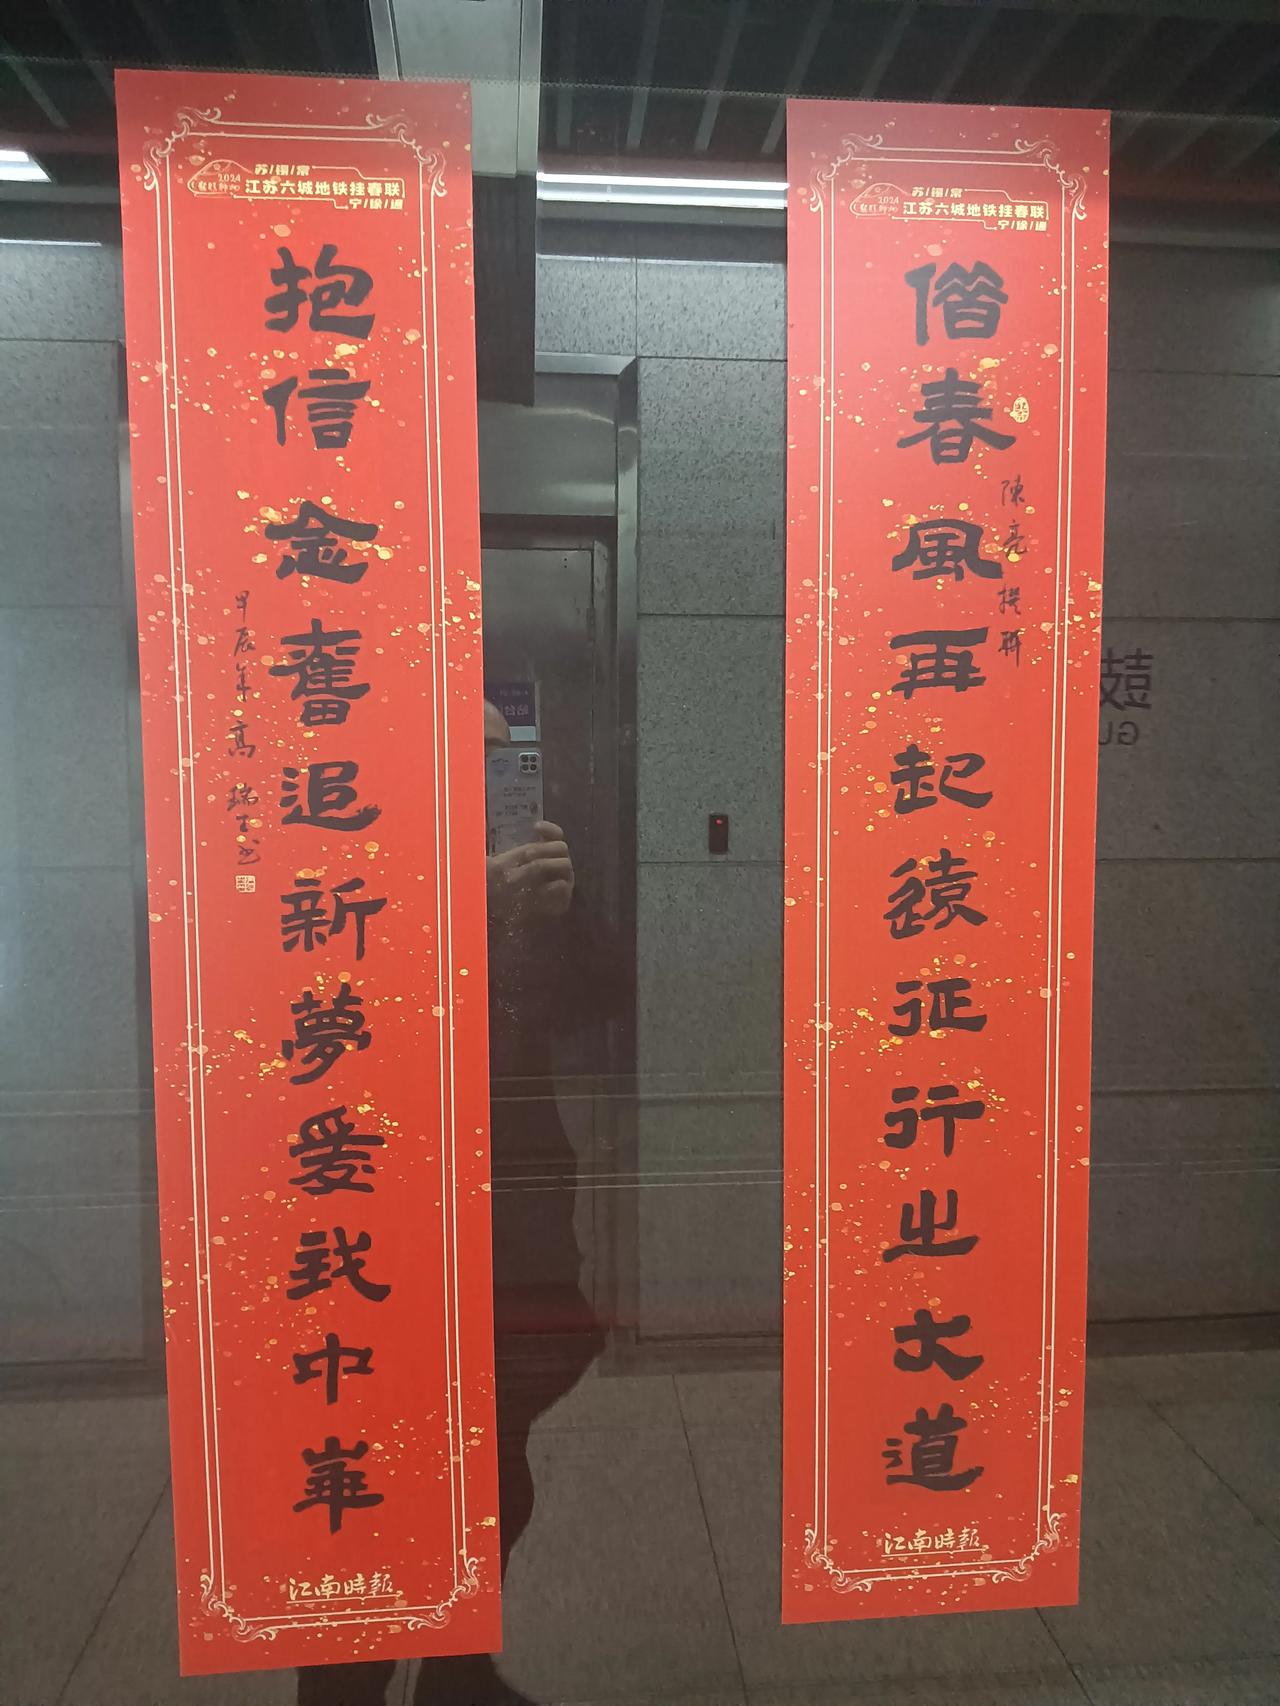 2024
苏/锡/常
江苏六城地铁挂春联
宁/徐/通
借春風再起遠征行之大道
陳亮撰聯
江南時報
2024
苏/锡/常
江苏六城地铁挂春联
宁/徐/通
抱信念奮追新夢愛我中華
甲辰年高瑞
江南時報